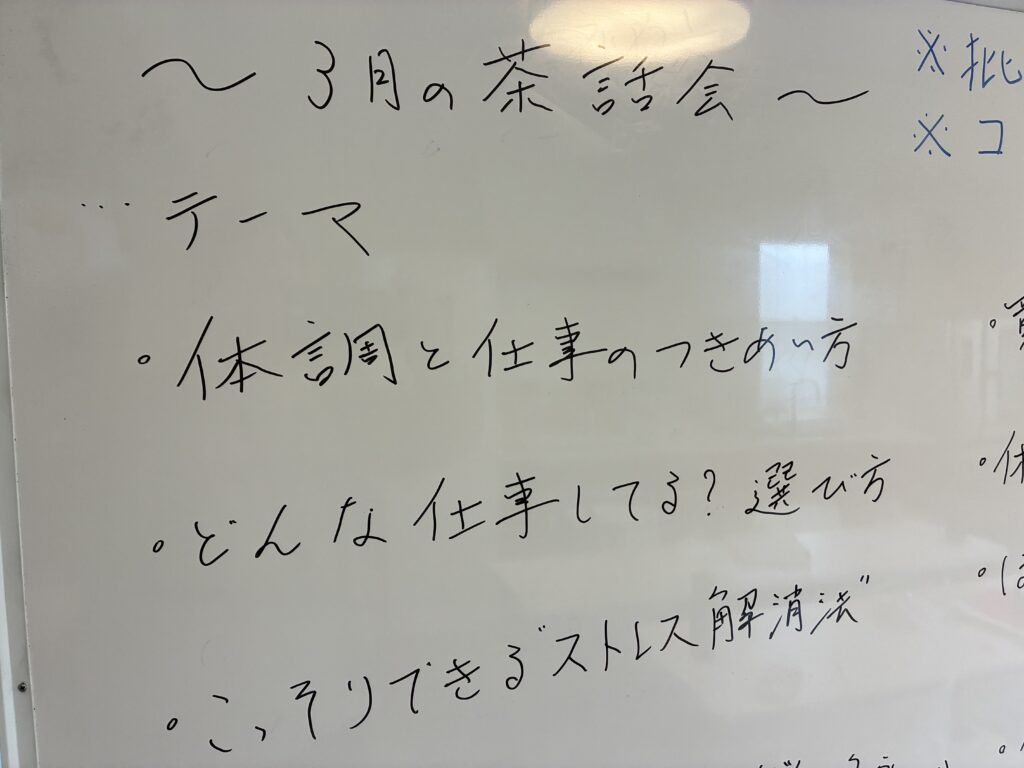 ～3月の茶話会～
※批
※コ
… テーマ
。体調と仕事のつきあい方
。どんな仕事してる？選び方
。こっそりできる"ストレス解消法"